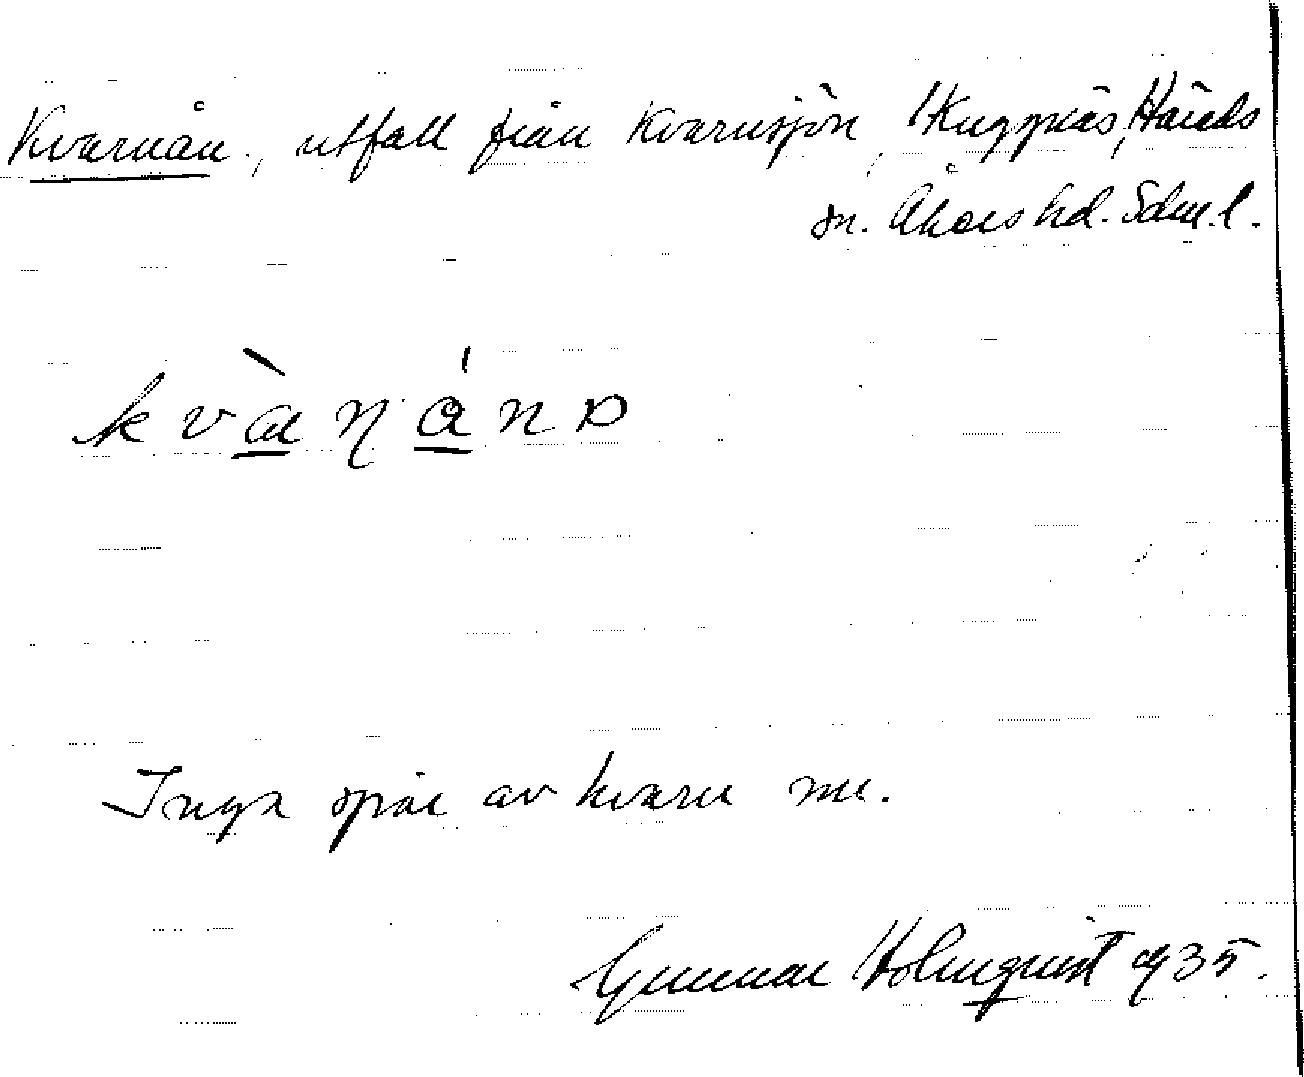 Kvarnån, utfall från Kvarnsjön, Skeppnäs, Härads
sn. Åkers hd. Sdml.
kvàṇánɒ
Inga spår av kvarn nu.
Gunnar Holmquist 1935.